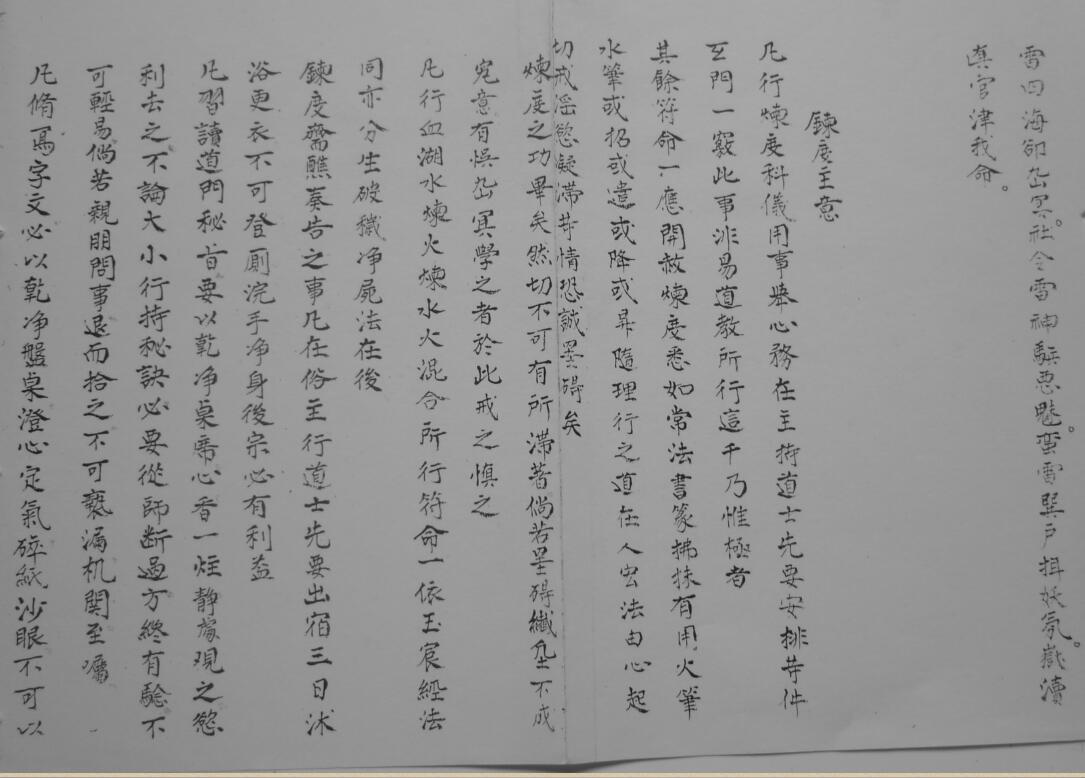 雷四海卻岳冥。社令雷神駈惡魅。蛮雷巽户揖妖氛。嶽瀆
真官津我命。
鍊度主意
凡行煉度科儀用事舉心務在主持道士先要安排其件
玄門一竅此事非易道教所行這千乃惟極者
其餘符命一應開赦煉度悉如常法書篆拂抹有用火筆
水筆或招或遣或降或昇隨理行之道在人宏法由心起
切戒滛慾凝滞其情恐誠罣碍矣
煉度之功畢矣然切不可有所滞著倘若罣碍纖塵不成
寃意有悞岳冥學之者於此戒之慎之
凡行血湖水煉火煉水火混合所行符命一依玉宸經法
同亦分生破穢净屍法在後
鍊度齋醮奏告之事凡在俗主行道士先要出宿三日沭
浴更衣不可登厠浣手净身後宗必有利益
凡習讀道門秘旨要以乹净桌席心香一炷静處观之慾
利去之不論大小行持秘訣必要從師断過方終有驗不
可輕易倘若親朋問事退而拾之不可褻漏机関至嘱
凡脩寫字文必以乹净盤桌澄心定氣碎紙沙眼不可以